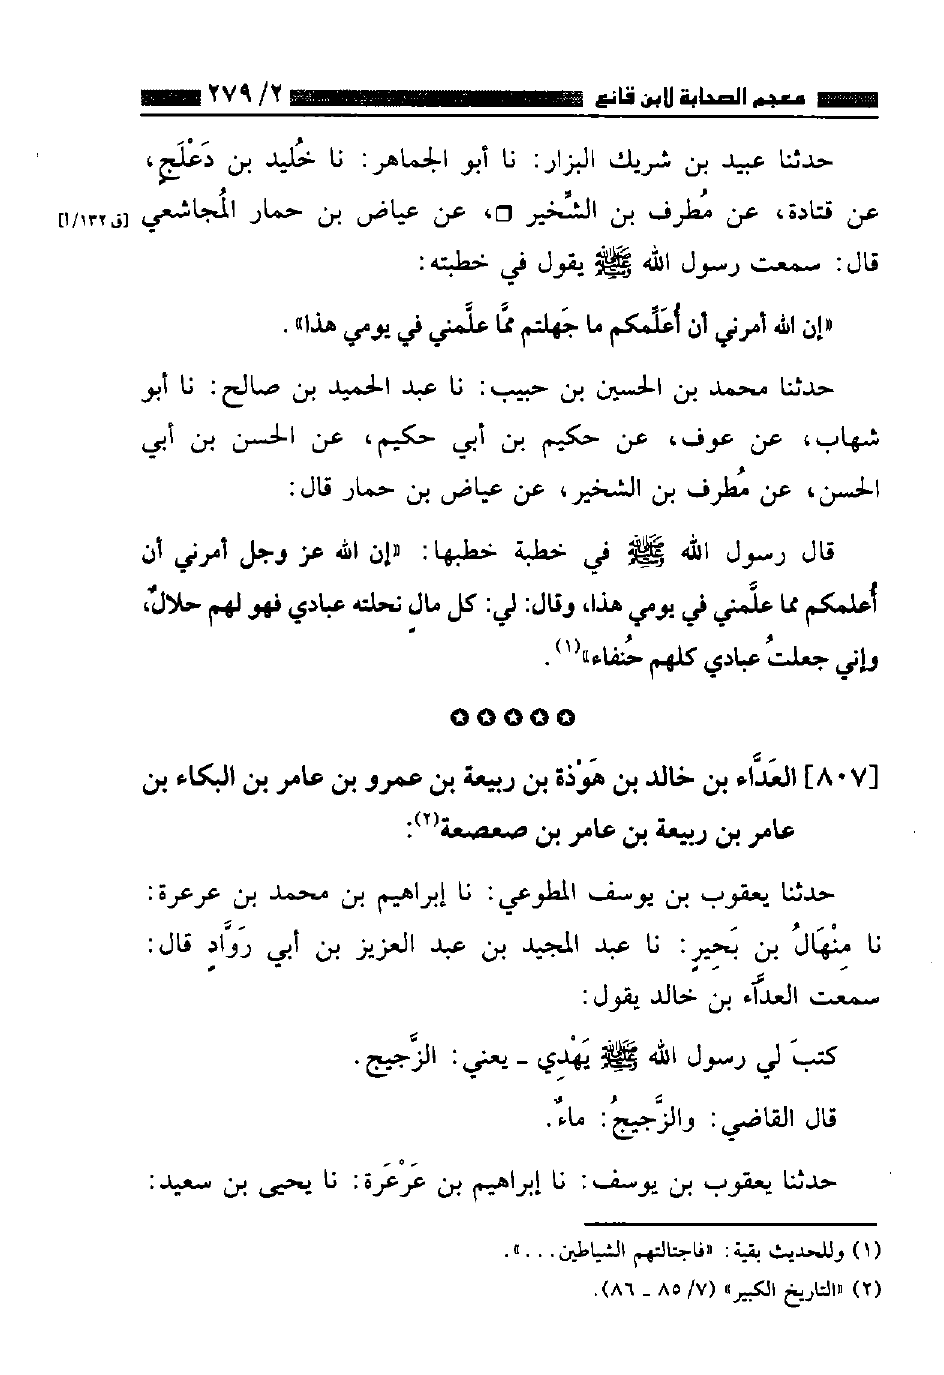 معجم الصحابة لابن قانع ٢٧٩/٢
حدثنا عبيد بن شريك البزار: نا أبو الجماهر: نا خُليد بن دَعْلَجٍ،
عن قتادة، عن مُطرف بن الشِّخير □، عن عياض بن حمار المُجاشعي [ق ١٣٢/أ]
قال: سمعت رسول الله ﷺ يقول في خطبته:
«إن الله أمرني أن أُعَلِّمكم ما جَهلتم ممَّا علَّمني في يومي هذا».
حدثنا محمد بن الحسين بن حبيب: نا عبد الحميد بن صالح: نا أبو
شهاب، عن عوف، عن حكيم بن أبي حكيم، عن الحسن بن أبي
الحسن، عن مُطرف بن الشخير، عن عياض بن حمار قال:
قال رسول الله ﷺ في خطبة خطبها: «إن الله عز وجل أمرني أن
أُعلمكم مما علَّمني في يومي هذا، وقال: لي: كل مالٍ نحلته عبادي فهو لهم حلالٌ،
وإني جعلتُ عبادي كلهم حُنفاء»(١).
✪ ✪ ✪ ✪ ✪
[٨٠٧] العَدَّاء بن خالد بن هَوْذة بن ربيعة بن عمرو بن عامر بن البكاء بن
عامر بن ربيعة بن عامر بن صعصعة(٢):
حدثنا يعقوب بن يوسف المطوعي: نا إبراهيم بن محمد بن عرعرة:
نا مِنْهَالُ بن بَحِيرٍ: نا عبد المجيد بن عبد العزيز بن أبي رَوَّادٍ قال:
سمعت العدَّاء بن خالد يقول:
كتبَ لي رسول الله ﷺ يَهْدِي ـ يعني: الزَّجيج.
قال القاضي: والزَّجيجُ: ماءٌ.
حدثنا يعقوب بن يوسف: نا إبراهيم بن عَرْعَرَة: نا يحيى بن سعيد:
(١) وللحديث بقية: «فاجتالتهم الشياطين...».
(٢) «التاريخ الكبير» (٧/ ٨٥ ـ ٨٦).